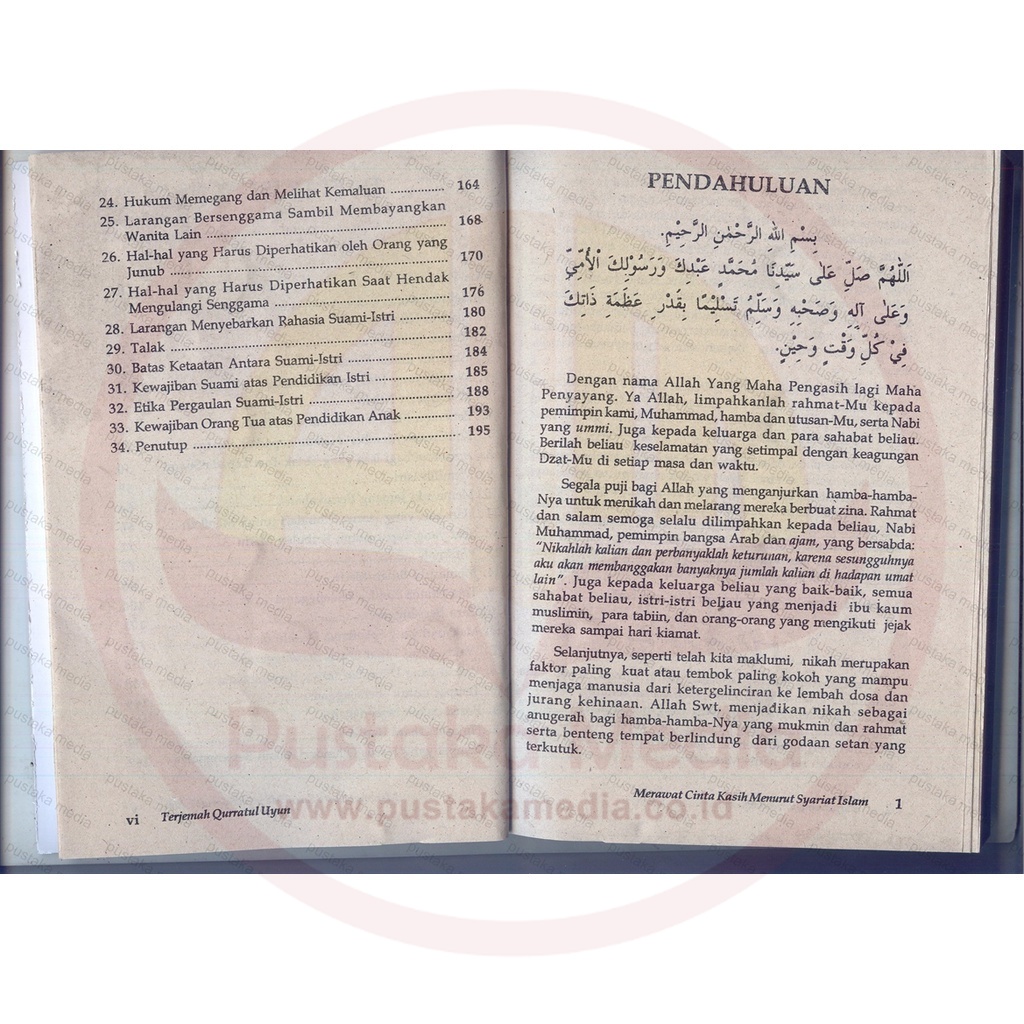 24. Hukum Memegang dan Melihat Kemaluan ................ 164
25. Larangan Bersenggama Sambil Membayangkan
Wanita Lain ................ 168
26. Hal-hal yang Harus Diperhatikan oleh Orang yang
Junub ................ 170
27. Hal-hal yang Harus Diperhatikan Saat Hendak
Mengulangi Senggama ................ 176
28. Larangan Menyebarkan Rahasia Suami-Istri ................ 180
29. Talak ................ 182
30. Batas Ketaatan Antara Suami-Istri ................ 184
31. Kewajiban Suami atas Pendidikan Istri ................ 185
32. Etika Pergaulan Suami-Istri ................ 188
33. Kewajiban Orang Tua atas Pendidikan Anak ................ 193
34. Penutup ................ 195
vi Terjemah Qurratul Uyun
PENDAHULUAN
بِسْمِ اللهِ الرَّحْمٰنِ الرَّحِيْمِ.
اَللّٰهُمَّ صَلِّ عَلٰى سَيِّدِنَا مُحَمَّدٍ عَبْدِكَ وَرَسُوْلِكَ الْأُمِّيِّ
وَعَلٰى آلِهِ وَصَحْبِهِ وَسَلِّمْ تَسْلِيْمًا بِقَدْرِ عَظَمَةِ ذَاتِكَ
فِيْ كُلِّ وَقْتٍ وَحِيْنٍ.
Dengan nama Allah Yang Maha Pengasih lagi Maha
Penyayang. Ya Allah, limpahkanlah rahmat-Mu kepada
pemimpin kami, Muhammad, hamba dan utusan-Mu, serta Nabi
yang ummi. Juga kepada keluarga dan para sahabat beliau.
Berilah beliau keselamatan yang setimpal dengan keagungan
Dzat-Mu di setiap masa dan waktu.
Segala puji bagi Allah yang menganjurkan hamba-hamba-
Nya untuk menikah dan melarang mereka berbuat zina. Rahmat
dan salam semoga selalu dilimpahkan kepada beliau, Nabi
Muhammad, pemimpin bangsa Arab dan ajam, yang bersabda:
"Nikahlah kalian dan perbanyaklah keturunan, karena sesungguhnya
aku akan membanggakan banyaknya jumlah kalian di hadapan umat
lain". Juga kepada keluarga beliau yang baik-baik, semua
sahabat beliau, istri-istri beliau yang menjadi ibu kaum
muslimin, para tabiin, dan orang-orang yang mengikuti jejak
mereka sampai hari kiamat.
Selanjutnya, seperti telah kita maklumi, nikah merupakan
faktor paling kuat atau tembok paling kokoh yang mampu
menjaga manusia dari ketergelinciran ke lembah dosa dan
jurang kehinaan. Allah Swt. menjadikan nikah sebagai
anugerah bagi hamba-hamba-Nya yang mukmin dan rahmat
serta benteng tempat berlindung dari godaan setan yang
terkutuk.
Merawat Cinta Kasih Menurut Syariat Islam 1
Pustaka Media
www.pustakamedia.co.id